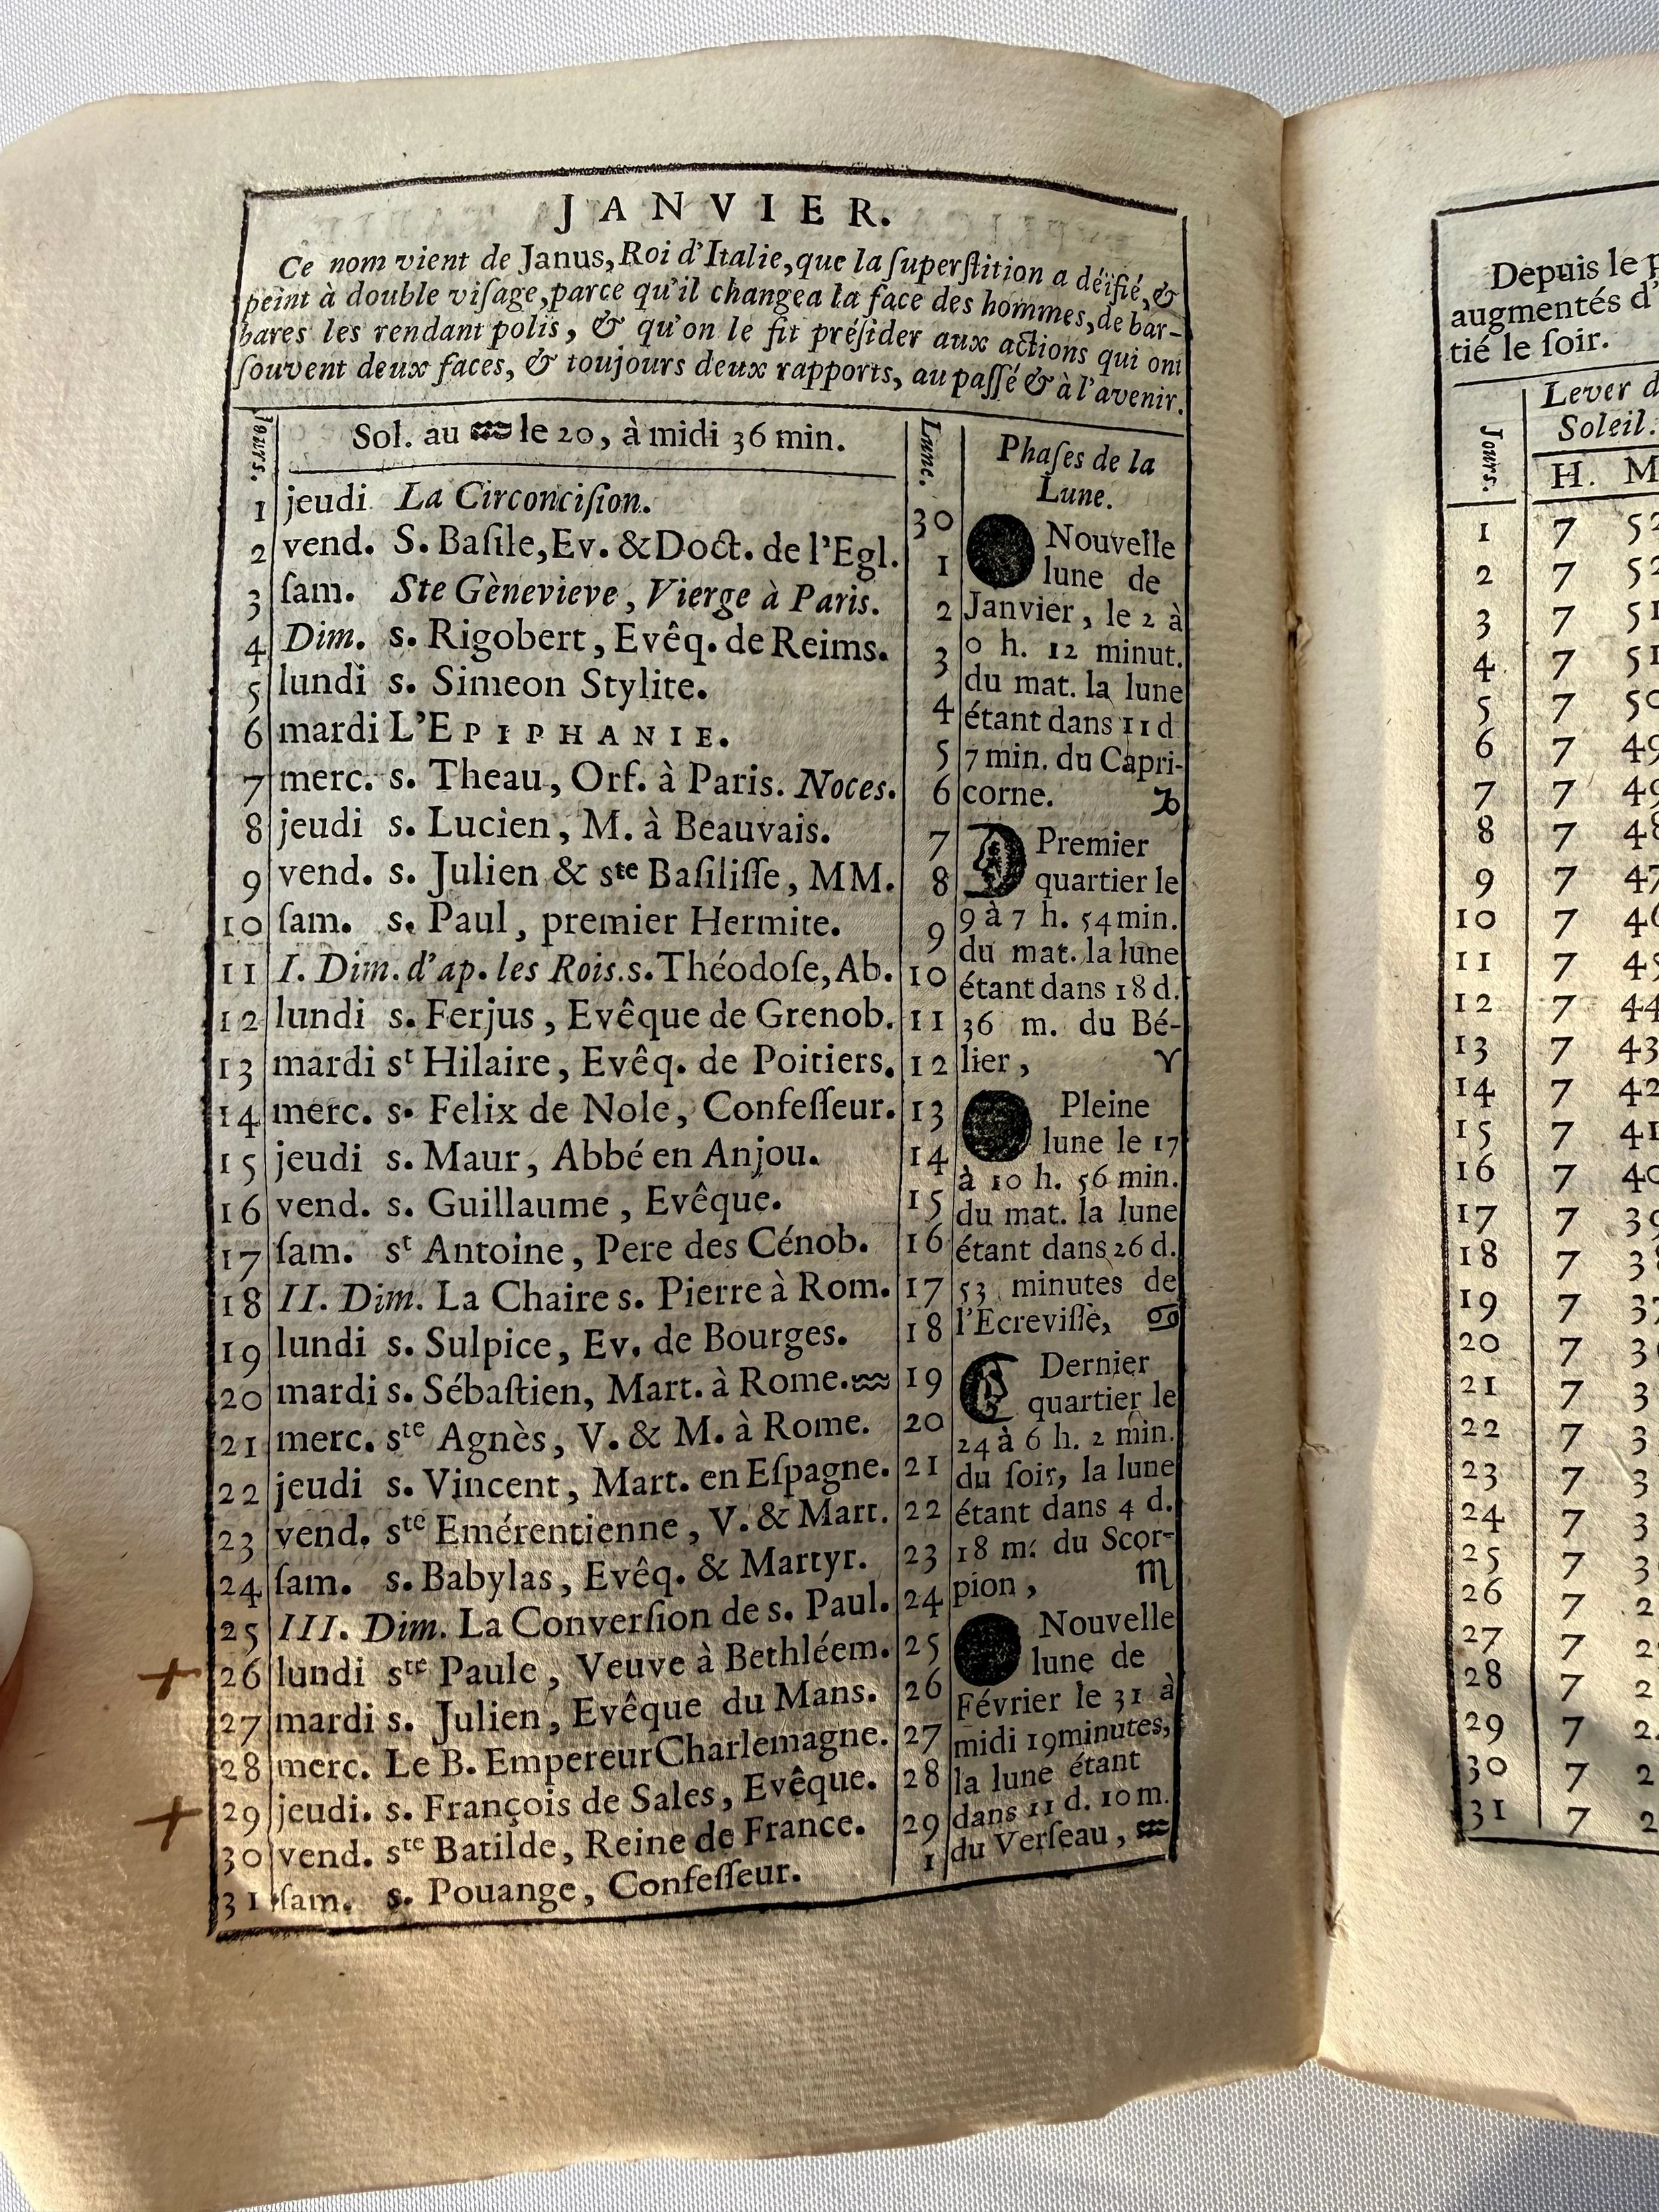 JANVIER.
Ce nom vient de Janus, Roi d'Italie, que la ſuperſtition a déifié, &
peint à double viſage, parce qu'il changea la face des hommes, de bar-
bares les rendant polis, & qu'on le fit préſider aux actions qui ont
ſouvent deux faces, & toujours deux rapports, au paſſé & à l'avenir.
Jours. Sol. au ♒ le 20, à midi 36 min. Lune.
1 jeudi La Circonciſion. 30
2 vend. S. Baſile, Ev. & Doct. de l'Egl. 1
3 ſam. Ste Gènevieve, Vierge à Paris. 2
4 Dim. s. Rigobert, Evêq. de Reims. 3
5 lundi s. Simeon Stylite. 4
6 mardi L'EPIPHANIE. 5
7 merc. s. Theau, Orf. à Paris. Noces. 6
8 jeudi s. Lucien, M. à Beauvais. 7
9 vend. s. Julien & ste Baſiliſſe, MM. 8
10 ſam. s. Paul, premier Hermite. 9
11 I. Dim. d'ap. les Rois. s. Théodoſe, Ab. 10
12 lundi s. Ferjus, Evêque de Grenob. 11
13 mardi st Hilaire, Evêq. de Poitiers. 12
14 merc. s. Felix de Nole, Confeſſeur. 13
15 jeudi s. Maur, Abbé en Anjou. 14
16 vend. s. Guillaume, Evêque. 15
17 ſam. st Antoine, Pere des Cénob. 16
18 II. Dim. La Chaire s. Pierre à Rom. 17
19 lundi s. Sulpice, Ev. de Bourges. 18
20 mardi s. Sébaſtien, Mart. à Rome. ♒ 19
21 merc. ste Agnès, V. & M. à Rome. 20
22 jeudi s. Vincent, Mart. en Eſpagne. 21
23 vend. ste Emérentienne, V. & Mart. 22
24 ſam. s. Babylas, Evêq. & Martyr. 23
25 III. Dim. La Converſion de s. Paul. 24
+ 26 lundi ste Paule, Veuve à Bethléem. 25
27 mardi s. Julien, Evêque du Mans. 26
28 merc. Le B. Empereur Charlemagne. 27
+ 29 jeudi. s. François de Sales, Evêque. 28
30 vend. ste Batilde, Reine de France. 29
31 ſam. s. Pouange, Confeſſeur. 1
Phaſes de la
Lune.
Nouvelle
lune de
Janvier, le 2 à
0 h. 12 minut.
du mat. la lune
étant dans 11 d
7 min. du Capri-
corne. ♑
Premier
quartier le
9 à 7 h. 54 min.
du mat. la lune
étant dans 18 d.
36 m. du Bé-
lier, ♈
Pleine
lune le 17
à 10 h. 56 min.
du mat. la lune
étant dans 26 d.
53 minutes de
l'Ecreviſſe, ♋
Dernier
quartier le
24 à 6 h. 2 min.
du ſoir, la lune
étant dans 4 d.
18 m. du Scor-
pion, ♏
Nouvelle
lune de
Février le 31 à
midi 19 minutes,
la lune étant
dans 11 d. 10 m.
du Verſeau, ♒
Depuis le
augmentés d'
tié le ſoir.
Jours. Lever
Soleil.
H. M
1 7
2 7
3 7
4 7
5 7
6 7 49
7 7 49
8 7 48
9 7 47
10 7
11 7
12 7 44
13 7 43
14 7 42
15 7 41
16 7 40
17 7 39
18 7
19 7 37
20 7
21 7
22 7
23 7
24 7
25 7
26 7
27 7
28 7
29 7
30 7
31 7